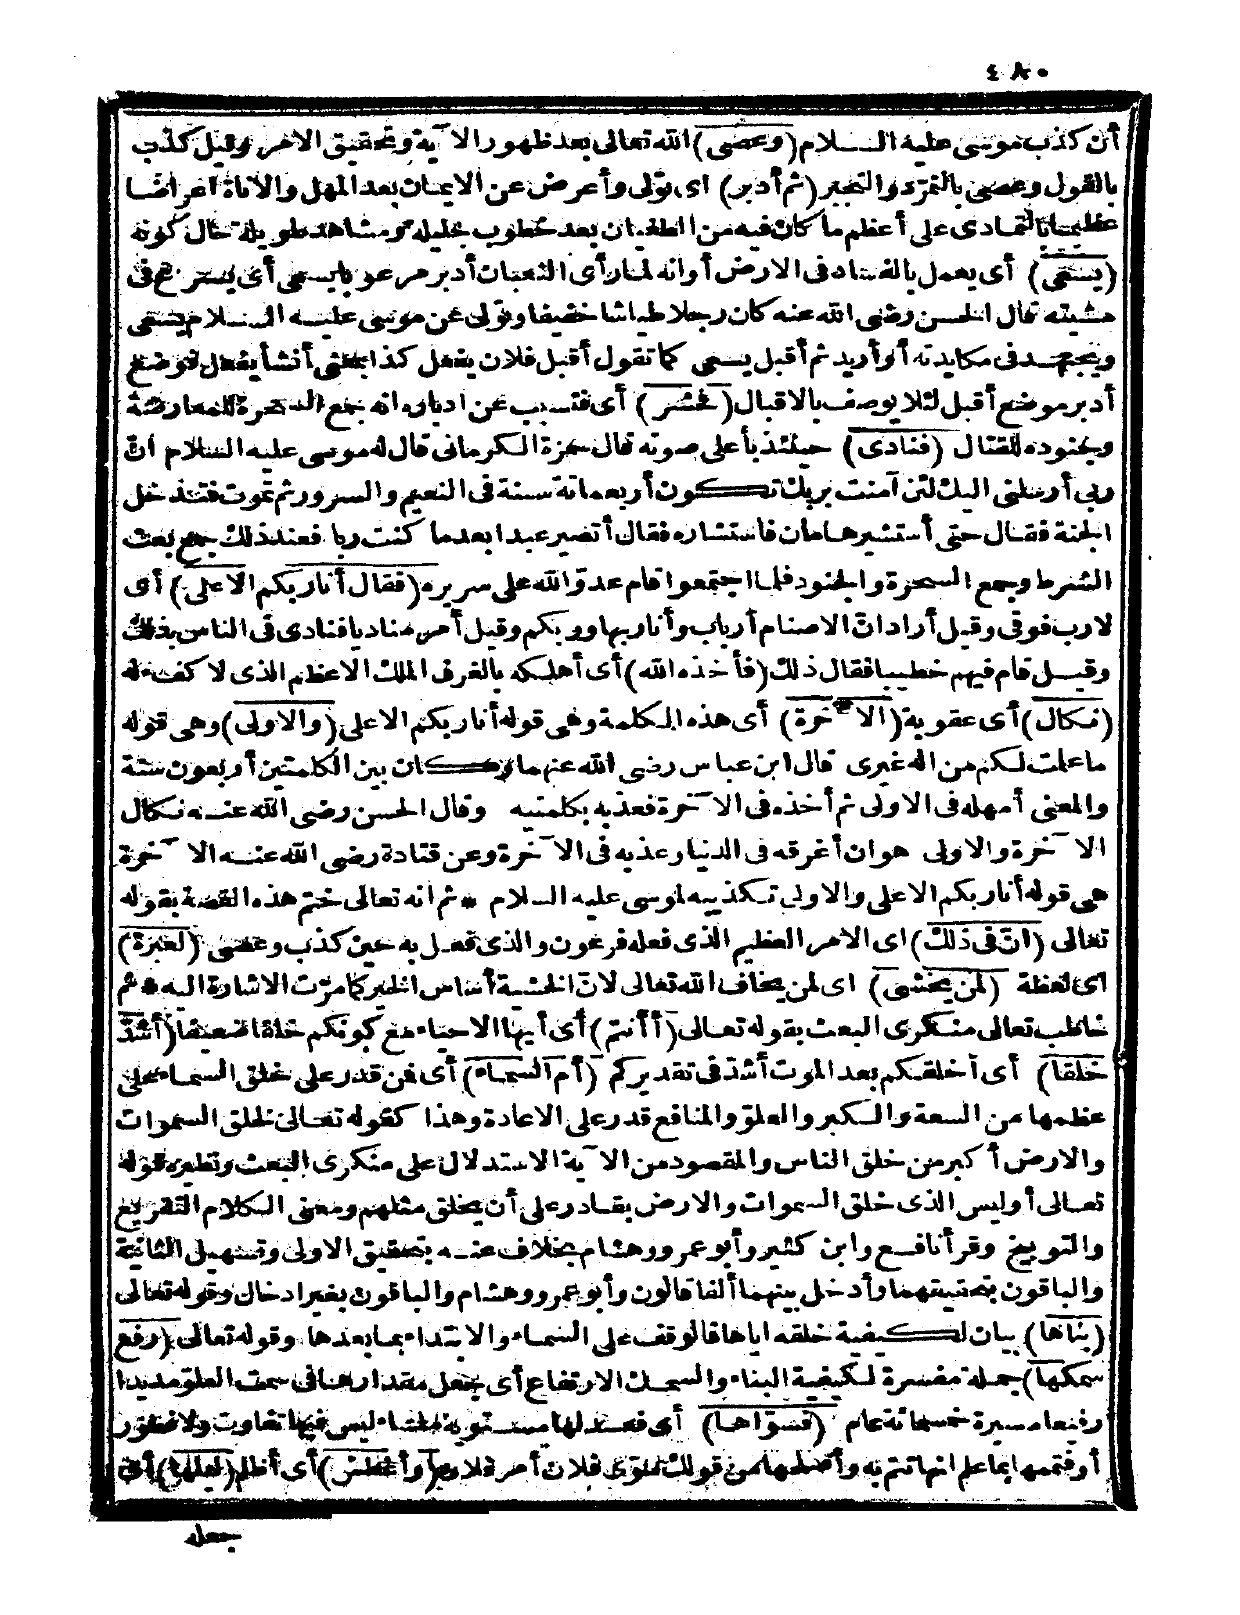 ٤٨٠
أن كذب موسى عليه السلام (وعصى) الله تعالى بعد ظهور الآية وتحقيق الامر وقيل كذب
بالقول وعصى بالتمرّد والتجبر (ثم أدبر) اى تولى وأعرض عن الايمان بعد المهل والاناة اعراضا
عظيما بالتمادى على أعظم ما كان فيه من الطغيان بعد خطوب جليلة ومشاهد طويلة حال كونه
(يسعى) أى يعمل بالفساد فى الارض أوانه لما رأى الثعبان أدبر مرعوبا يسعى أى يسرع فى
مشيته قال الحسن رضى الله عنه كان رجلا طياشا خفيفا وتولى عن موسى عليه السلام يسعى
ويجتهد فى مكايدته أو أريد ثم أقبل يسعى كما تقول أقبل فلان يفعل كذا بمعنى أنشأ يفعل فوضع
أدبر موضع أقبل لئلا يوصف بالاقبال (فحشر) أى فتسبب عن ادباره انه جمع السحرة للمعارضة
وجنوده للقتال (فنادى) حينئذ بأعلى صوته قال حمزة الكرمانى قال له موسى عليه السلام انّ
ربى أرسلنى اليك لئن آمنت بربك تكون أربعمائة سنة فى النعيم والسرور ثم تموت فتدخل
الجنة فقال حتى أستشير هامان فاستشاره فقال أتصير عبدا بعدما كنت ربا فعند ذلك جمع بعث
الشرط وجمع السحرة والجنود فلما اجتمعوا قام عدوّ الله على سريره (فقال أنا ربكم الاعلى) أى
لارب فوقى وقيل أراد انّ الاصنام أرباب وأنا ربها وربكم وقيل أمر مناديا فنادى فى الناس بذلك
وقيل قام فيهم خطيبا فقال ذلك (فأخذه الله) أى أهلكه بالغرق الملك الاعظم الذى لا كفء له
(نكال) أى عقوبة (الآخرة) أى هذه الكلمة وهى قوله أنا ربكم الاعلى (والاولى) وهى قوله
ما علمت لكم من اله غيرى قال ابن عباس رضى الله عنهما وكان بين الكلمتين أربعون سنة
والمعنى أمهله فى الاولى ثم أخذه فى الآخرة فعذبه بكلمتيه وقال الحسن رضى الله عنه نكال
الآخرة والاولى هو ان أغرقه فى الدنيا وعذبه فى الآخرة وعن قتادة رضى الله عنه الآخرة
هى قوله أنا ربكم الاعلى والاولى تكذيبه لموسى عليه السلام * ثم انه تعالى ختم هذه القصة بقوله
تعالى (انّ فى ذلك) اى الامر العظيم الذى فعله فرعون والذى فعل به حين كذب وعصى (لعبرة)
اى لعظة (لمن يخشى) اى لمن يخاف الله تعالى لانّ الخشية أساس الخير كما مرّت الاشارة اليه * ثم
خاطب تعالى منكرى البعث بقوله تعالى (أأنتم) أى أيها الاحياء مع كونكم خلقا ضعيفا (أشدّ
خلقا) أى أخلقكم بعد الموت أشدّ فى تقديركم (أم السماء) أى فمن قدر على خلق السماء على
عظمها من السعة والكبر والعلوّ والمنافع قدر على الاعادة وهذا كقوله تعالى لخلق السموات
والارض أكبر من خلق الناس والمقصود من الآية الاستدلال على منكرى البعث ونظيره قوله
تعالى أوليس الذى خلق السموات والارض بقادر على أن يخلق مثلهم ومعنى الكلام التقريع
والتوبيخ وقرأ نافع وابن كثير وأبو عمرو وهشام بخلاف عنه بتحقيق الاولى وتسهيل الثانية
والباقون بتحقيقهما وأدخل بينهما ألفا قالون وأبو عمرو وهشام والباقون بغير ادخال وقوله تعالى
(بناها) بيان لكيفية خلقه اياها فالوقف على السماء والابتداء بما بعدها وقوله تعالى (رفع
سمكها) جملة مفسرة لكيفية البناء والسمك الارتفاع أى جعل مقدارها فى سمت العلوّ مديدا
رفيعا مسيرة خمسمائة عام (فسوّاها) أى فعدلها مستوية ملساء ليس فيها تفاوت ولا فطور
أو فتممها بما علم انها تتم به وأصلحها من قولك سوّى فلان أمر فلان (وأغطش) أى أظلم (ليلها) أى
جعله